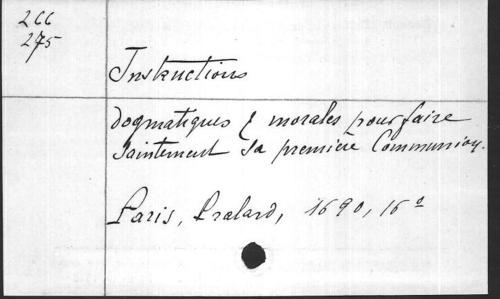 266
275
Instructions
dogmatiques & morales pour faire
saintement sa première Communion.
Paris, Pralard, 1690, 16º